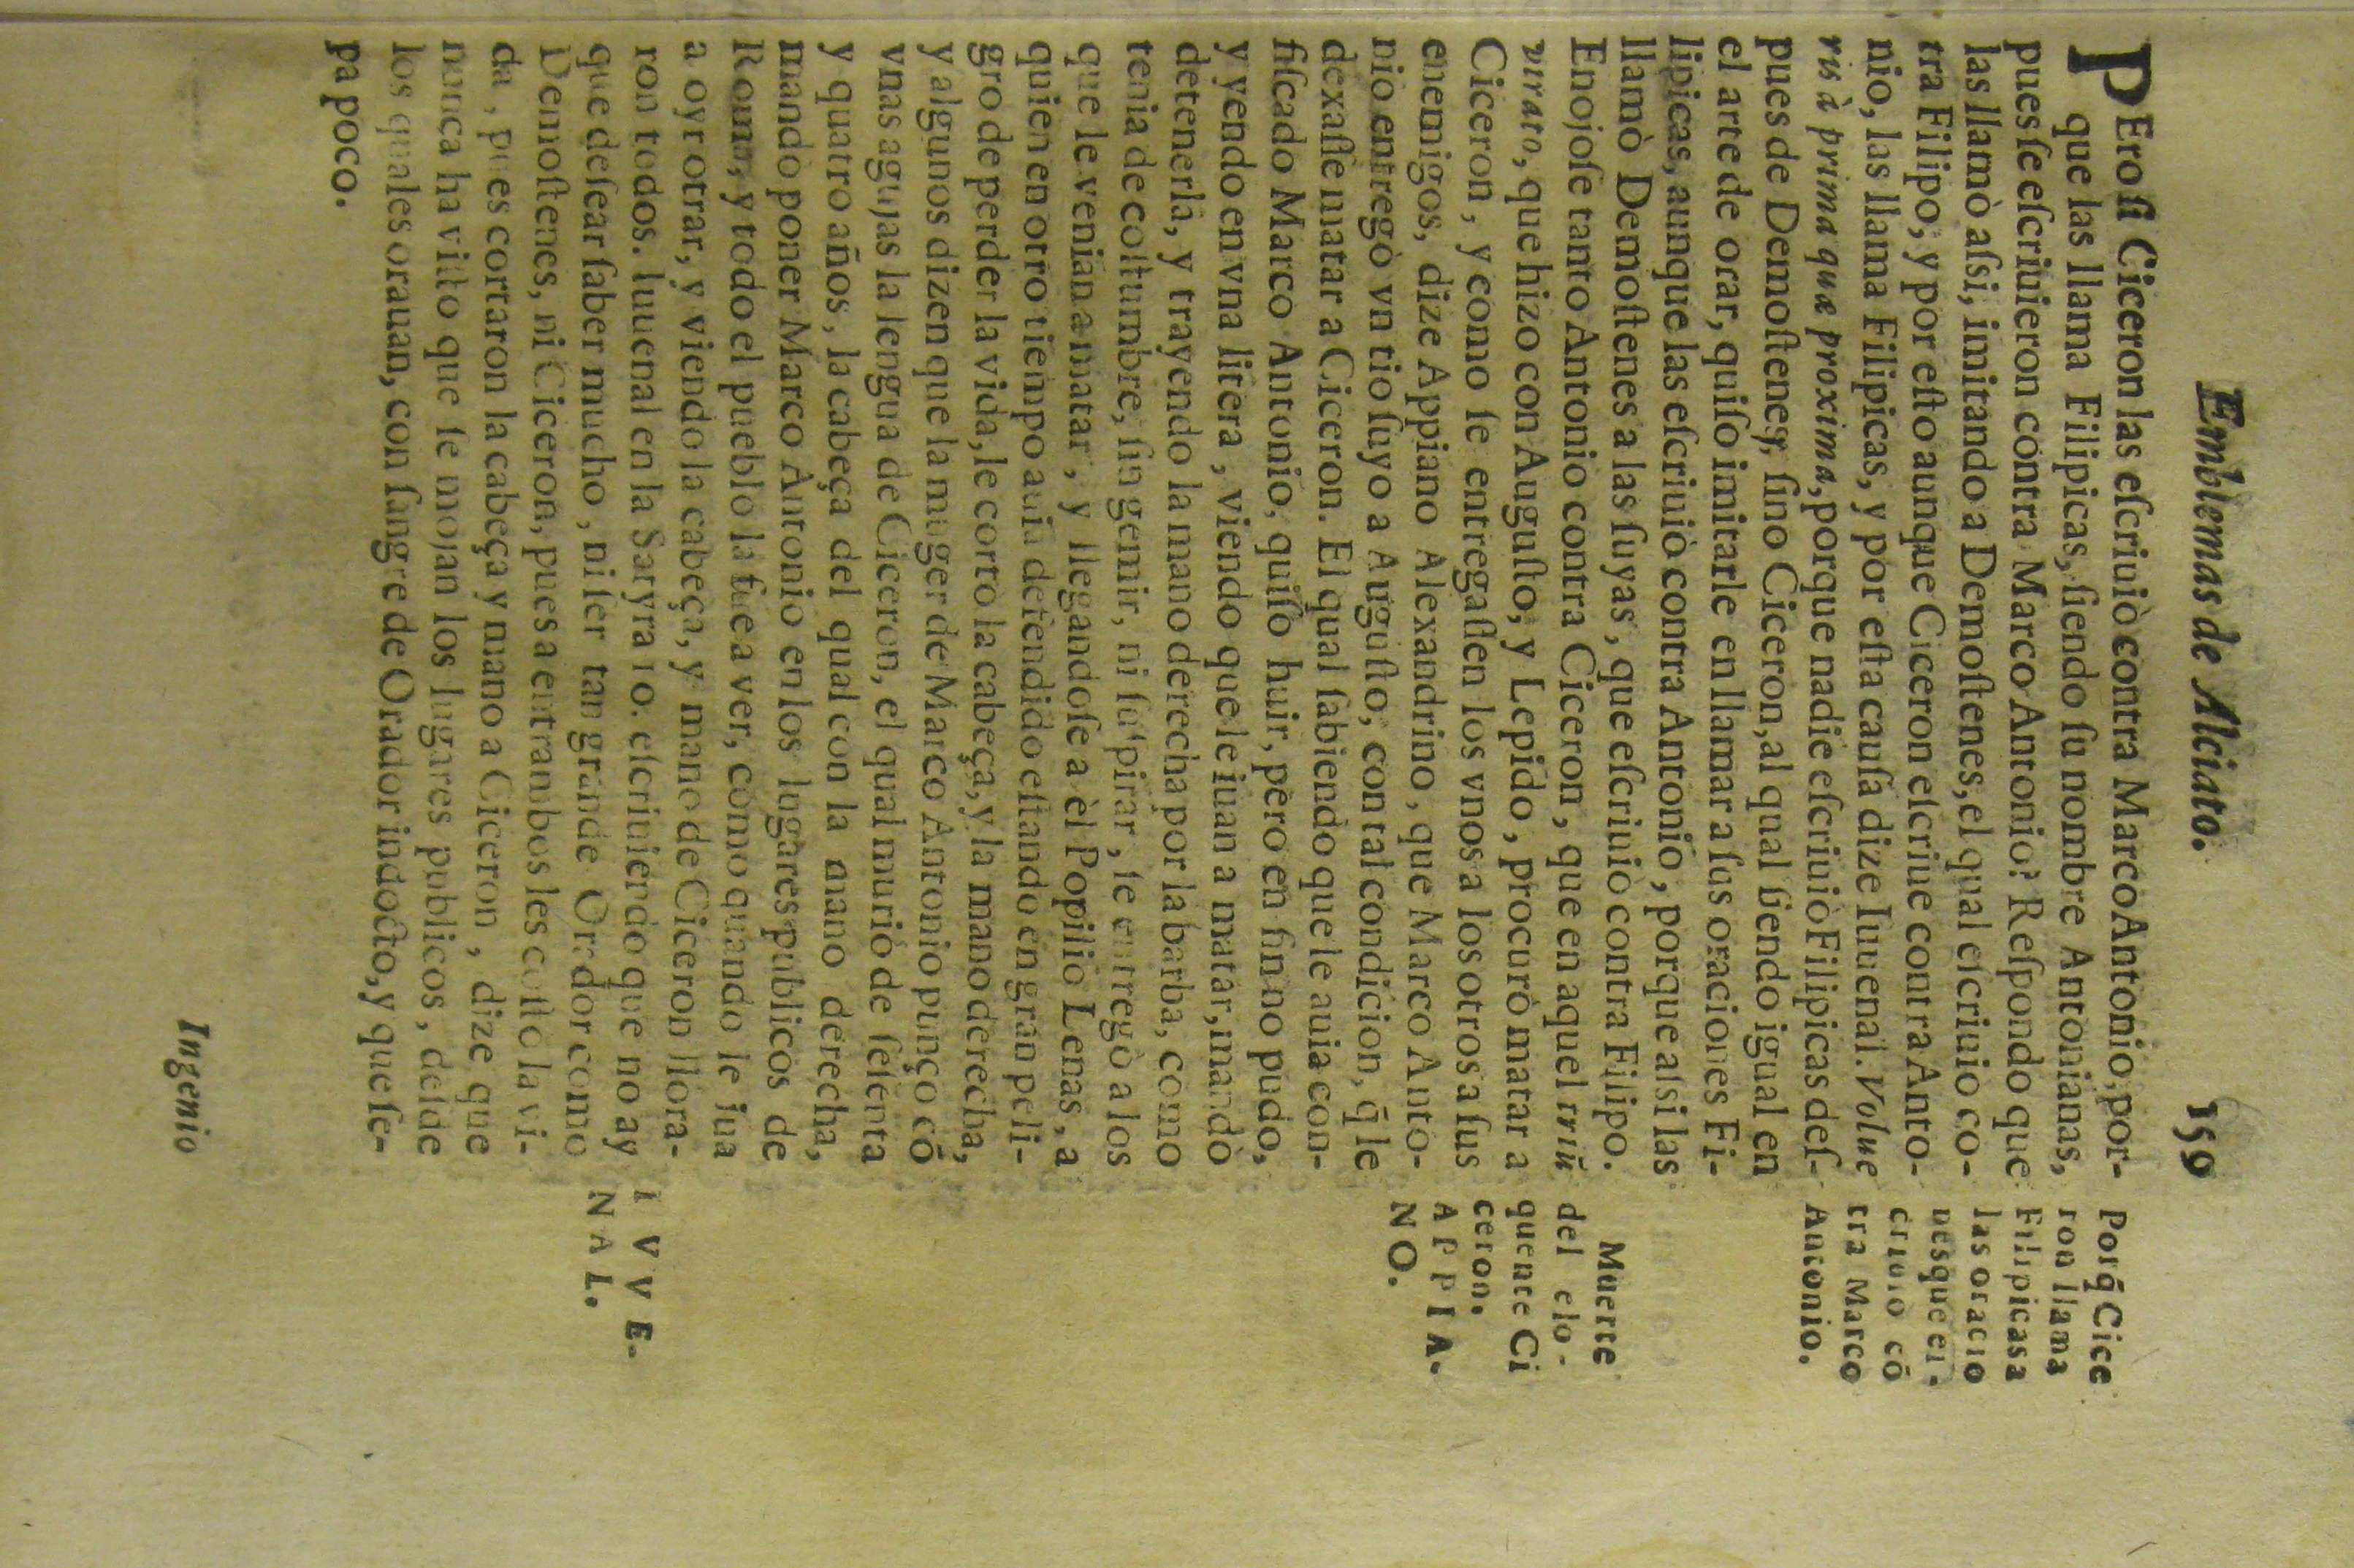 Emblemas de Alciato. 159
PEro ſi Ciceron las eſcriuiò contra Marco Antonio, por-
que las llama Filipicas, ſiendo ſu nombre Antonianas,
pues ſe eſcriuieron contra Marco Antonio? Reſpondo que
las llamò aſsi, imitando a Demoſtenes, el qual eſcriuio co-
tra Filipo, y por eſto aunque Ciceron eſcriue contra Anto-
nio, las llama Filipicas, y por eſta cauſa dize Iuuenal. Volue
ris à prima quæ proxima, porque nadie eſcriuiò Filipicas deſ-
pues de Demoſtenes, ſino Ciceron, al qual ſiendo igual en
el arte de orar, quiſo imitarle en llamar a ſus oraciones Fi-
lipicas, aunque las eſcriuiò contra Antonio, porque aſsi las
llamò Demoſtenes a las ſuyas, que eſcriuiò contra Filipo.
Enojoſe tanto Antonio contra Ciceron, que en aquel triũ
virato, que hizo con Auguſto, y Lepido, procurò matar a
Ciceron, y como ſe entregaſſen los vnos a los otros a ſus
enemigos, dize Appiano Alexandrino, que Marco Anto-
nio entregò vn tio ſuyo a Auguſto, con tal condicion, q̃ le
dexaſſe matar a Ciceron. El qual ſabiendo que le auia con-
fiſcado Marco Antonio, quiſo huir, pero en fin no pudo,
y yendo en vna litera, viendo que le iuan a matar, mandò
detenerla, y trayendo la mano derecha por la barba, como
tenia de coſtumbre, ſin gemir, ni ſuſpirar, ſe entregò a los
que le venian a matar, y llegandoſe a èl Popilio Lenas, a
quien en otro tiempo auia defendido eſtando en gran peli-
gro de perder la vida, le cortò la cabeça, y la mano derecha,
y algunos dizen que la muger de Marco Antonio punçò cõ
vnas agujas la lengua de Ciceron, el qual murió de ſeſenta
y quatro años, la cabeça del qual con la mano derecha,
mandò poner Marco Antonio en los lugares publicos de
Roma, y todo el pueblo la fue a ver, como quando le iua
a oyr otrar, y viendo la cabeça, y mano de Ciceron llora-
ron todos. Iuuenal en la Satyra 10. eſcriuiendo que no ay
que deſear ſaber mucho, ni ſer tan grande Orador como
Demoſtenes, ni Ciceron, pues a entrambos les coſtò la vi-
da, pues cortaron la cabeça y mano a Ciceron, dize que
nunca ha viſto que ſe mojan los lugares publicos, deſde
los quales orauan, con ſangre de Orador indocto, y que ſe-
pa poco.
Porq̃ Cice
ron llama
Filipicas a
las oracio
nes que eſ-
criuio cõ
tra Marco
Antonio.
Muerte
del elo-
quente Ci
ceron.
APPIA-
NO.
IVVE-
NAL.
Ingenio